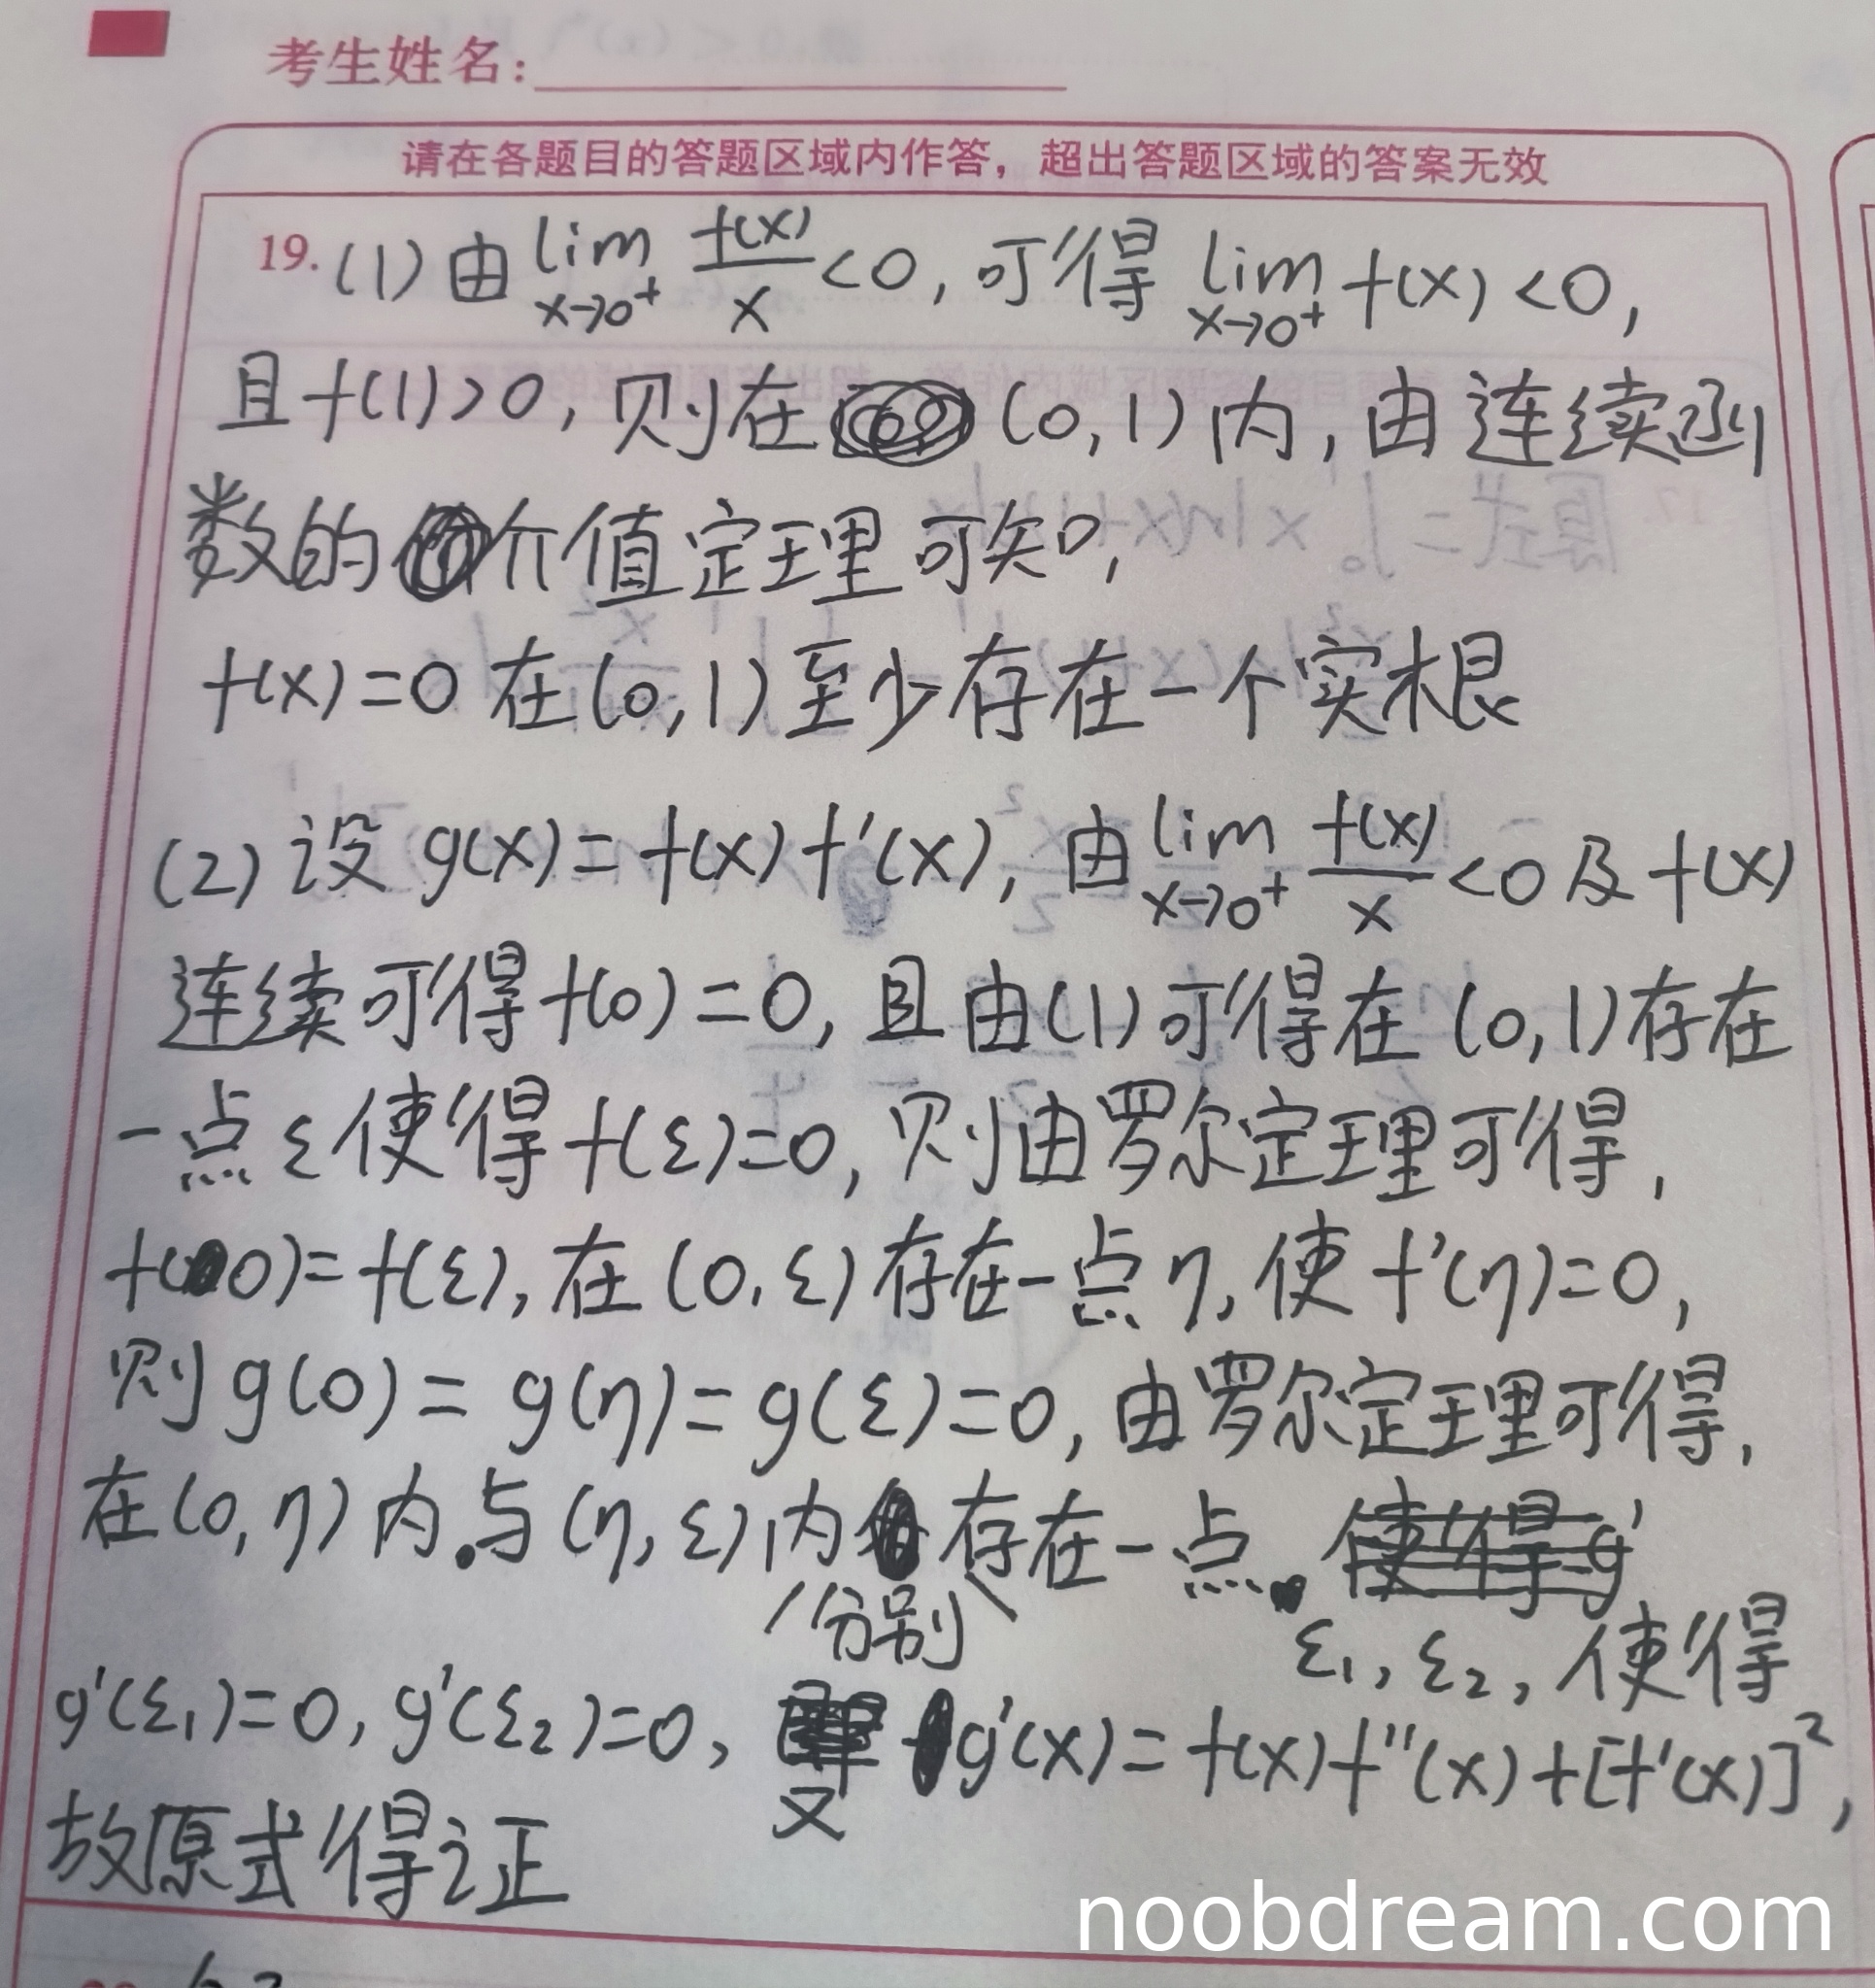 考生姓名:
请在各题目的答题区域内作答，超出答题区域的答案无效
19. (1) 由 lim x→0⁺ f(x)/x <0, 可得 lim x→0⁺ f(x) <0,
且 f(1)>0, 则在 (0,1) 内, 由连续函
数的介值定理可知,
f(x)=0 在 (0,1) 至少存在一个实根
(2) 设 g(x)= f(x) f'(x), 由 lim x→0⁺ f(x)/x <0 及 f(x)
连续可得 f(0) =0, 且由(1)可得在 (0,1)存在
一点 ξ 使得 f(ξ)=0, 则由罗尔定理可得,
f(0)= f(ξ), 在 (0, ξ) 存在一点 η, 使 f'(η)=0,
则 g(0) = g(η)= g(ξ)=0, 由罗尔定理可得,
在(0, η) 内与 (η, ξ) 内分别存在一点
ξ₁, ξ₂, 使得
g'(ξ₁)=0, g'(ξ₂)=0, 又 g'(x)= f(x) f''(x) +[f'(x)]²,
故原式得证
noobdream.com